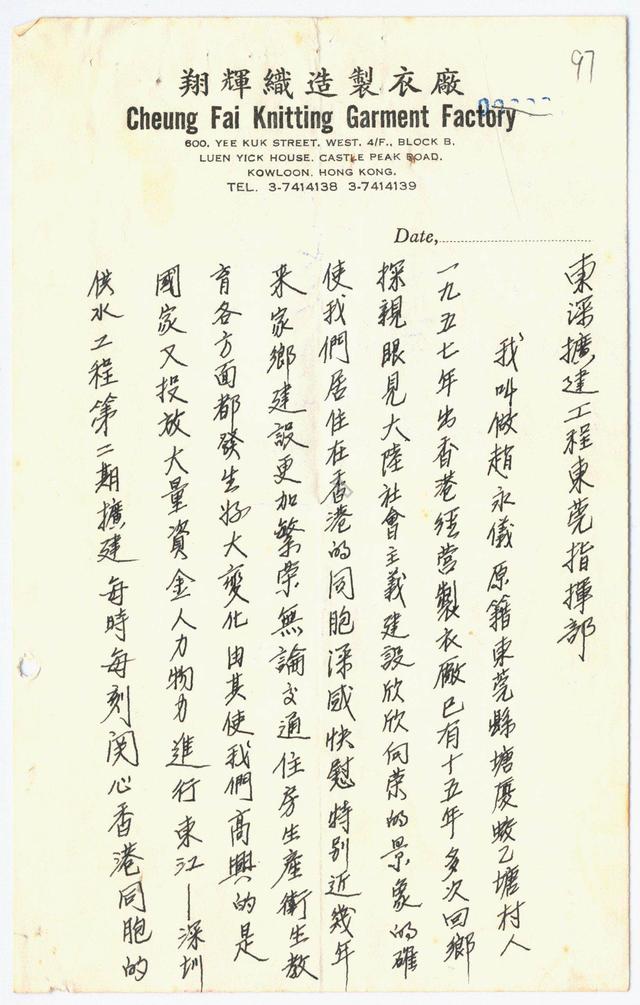 97
翔輝織造製衣廠
Cheung Fai Knitting Garment Factory
600, YEE KUK STREET, WEST, 4/F., BLOCK B,
LUEN YICK HOUSE, CASTLE PEAK ROAD,
KOWLOON, HONG KONG.
TEL. 3-7414138 3-7414139
Date,
東深擴建工程東莞指揮部
我叫做趙永儀原籍東莞縣塘厦蛟乙塘村人
一九五七年出香港經营製衣廠已有十五年多次回鄉
探親眼見大陸社會主義建設欣欣向荣的景象的確
使我們居住在香港的同胞深感快慰特別近幾年
来家鄉建設更加繁荣無論交通住房生產衛生教
育各方面都發生好大变化由其使我們高興的是
國家又投放大量資金人力物力進行東江—深圳
供水工程第二期擴建每時每刻関心香港同胞的